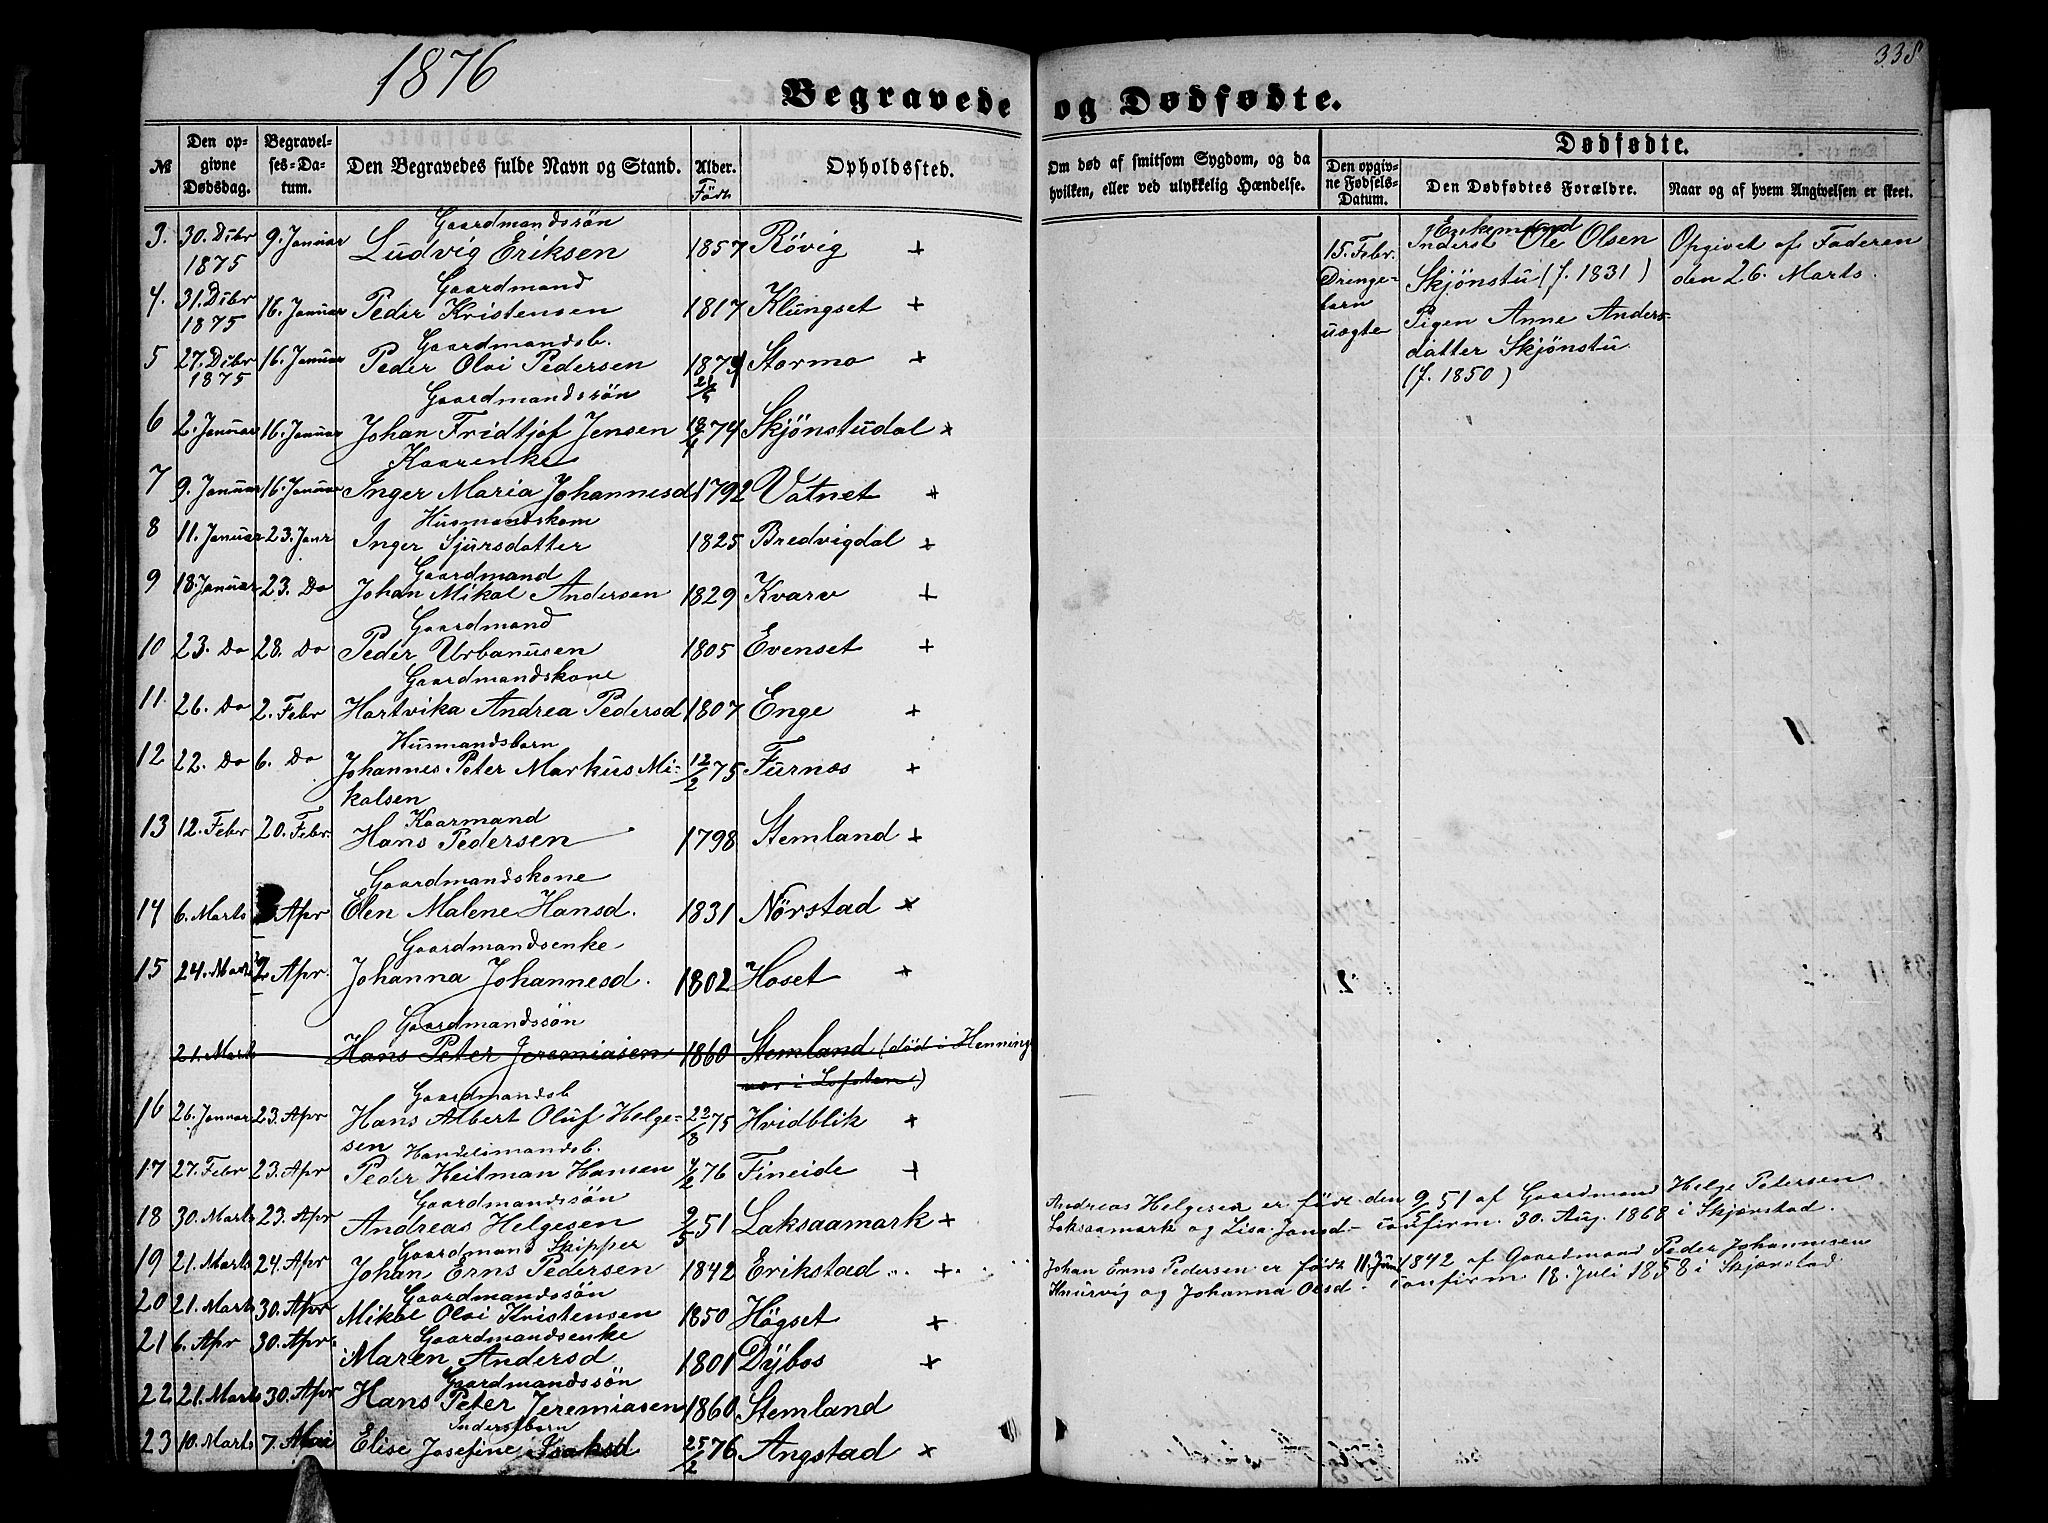 1876
338
Begravede og Dødfødte.
№
Den opgivne Dødsdag.
Begravelses-Datum.
Den Begravedes fulde Navn og Stand.
Alder. Født
Opholdssted.
Om død af smitsom Sygdom, og da hvilken, eller ved ulykkelig Hændelse.
Dødfødte.
Den opgivne Fødsels-Datum.
Den Dødfødtes Forældre.
Naar og af hvem Angivelsen er skeet.
Gaardmandssön
3. 30. Dcbr 1875 9. Januar Ludvig Eriksen 1857 Rövig +
Gaardmand
4. 31. Dcbr 1875 16. Januar Peder Kristensen 1817 Klungset +
Gaardmandsb.
5 27. Dcbr 1875 16. Januar Peder Olai Pedersen Stormo +
Gaardmandssön
6 2. Januar 16. Januar Johan Fridtjof Jensen 74 Skjönstudal ×
Kaarenke
7 9. Januar 16. Januar Inger Maria Johannesd 1792 Vatnet +
Husmandskom
8 11. Januar 23. Janr Inger Sjursdatter 1825 Bredvigdal +
Gaardmand
9 18. Januar 23. Do Johan Mikal Andersen 1829 Kvarv +
Gaardmand
10 23. Do 28. Do Peder Urbanusen 1805 Evenset +
Gaardmandskone
11. 26. Do 2. Febr Hartvika Andrea Pedersd 1807 Enge +
Husmandsbarn
12 22. Do 6. Do Johannes Peter Markus Mi- 12/2 75 Furnæs +
kalsen
Kaarmand
13 12. Febr 20. Febr. Hans Pedersen 1798 Stemland +
Gaardmandskone
14 6. Marts Apr Elen Malene Hansd. 1831 Nörstad ×
Gaardmandsenke
15 24. Marts 2 Apr. Johanna Johannesd. 1802 Hoset +
Gaardmandssön
21. Marts Hans Peter Jeremiasen 1860 Stemland (död i Hennings
vær i Lofoten)
Gaardmandsb
16 26. Januar 23. Apr Hans Albert Oluf Helge- 22/8 75 Hvidblik +
sen
Handelsmandsb.
17 27. Febr 23. Apr Peder Heitman Hansen 4/2 76 Fineide +
Gaardmandssön
18 30. Marts 23. Apr Andreas Helgesen 9/5 51 Laksaamark +
Gaardmand Skipper
19 21. Marts 24. Apr Johan Erns Pedersen 1842 Erikstad +
Gaardmandssön
20 21. Marts 30. Apr Mikal Olai Kristensen 1850 Högset +
Gaardmandsenke
21 6. Apr 30. Apr. Maren Andersd 1801 Dybos +
Gaardmandssön
22 21. Marts 30. Apr Hans Peter Jeremiasen 1860 Stemland
Inderstbarn
23 10. Marts 7. Mai Elise Josefine Isaksd 25/2 76 Angstad ×
15. Febr.
Drenge-
barn
uægte
Enkemand
Inderst Ole Olsen
Skjönstu (f. 1831)
Pigen Anne Anders-
datter Skjönstu
(f. 1850)
Opgivet af Faderen
den 26. Marts.
Andreas Helgesen er født den 9/5 51 af Gaardmand Helge Petersen
Laksaamark og Lisa Jansd – confirm. 30. Aug. 1868 i Skjerstad.
Johan Erns Pedersen er født 11. Juni 1842 af Gaardmand Peder Johannesen
Knurvig og Johanna Olsd – confirm 18. Juli 1858 i Skjærstad